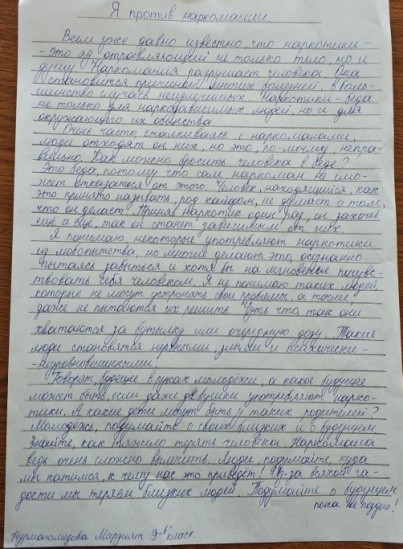 Я против наркомании.
Всем уже давно известно, что наркотики -
- это яд, отравляющий не только тело, но и
душу. Наркомания разрушает человека. Она
становится причиной многих болезней, в боль-
шинстве случаев неизлечимых. Наркотики - беда
не только для наркозависимых людей, но и для
окружающего их общества.
Очень часто, сталкиваясь с наркоманами,
люди отходят от них, но это, по-моему, непра-
вильно. Как можно бросить человека в беде?
Это беда, потому что сам наркоман не смо-
жет отказаться от этого. Человек, находящийся, как
это принято называть, под кайфом, не думает о том,
что он делает. Приняв наркотик один раз, он захочет
ещё и ещё, так он станет зависимым от них.
Я понимаю, некоторые употребляют наркотики
из любопытства, но многие делают это, осознанно
пытаясь забыться и хотя бы на мгновение почувс-
твовать себя человеком. Я не понимаю таких людей,
которые не могут устроить свои проблемы, а точнее,
даже не пытаются их решить. Чуть что, так они
хватаются за бутылку или очередную дозу. Такие
люди становятся нервными, злыми и психически-
- неуравновешенными.
Говорят, будущее в руках молодёжи, а какое будущее
может быть, если даже девушки употребляют нарко-
тики. А какие дети могут быть у таких родителей?
Молодёжь, подумайте о своих близких и о будущем.
Знайте, как тяжело терять человека. Наркомана
ведь очень сложно вылечить. Люди, подумайте, куда
мы катимся, к чему нас это приведёт! Из-за всякой га-
дости мы теряем близких людей. Подумайте о будущем,
пока не поздно!
Марзият 9-"а" класс.